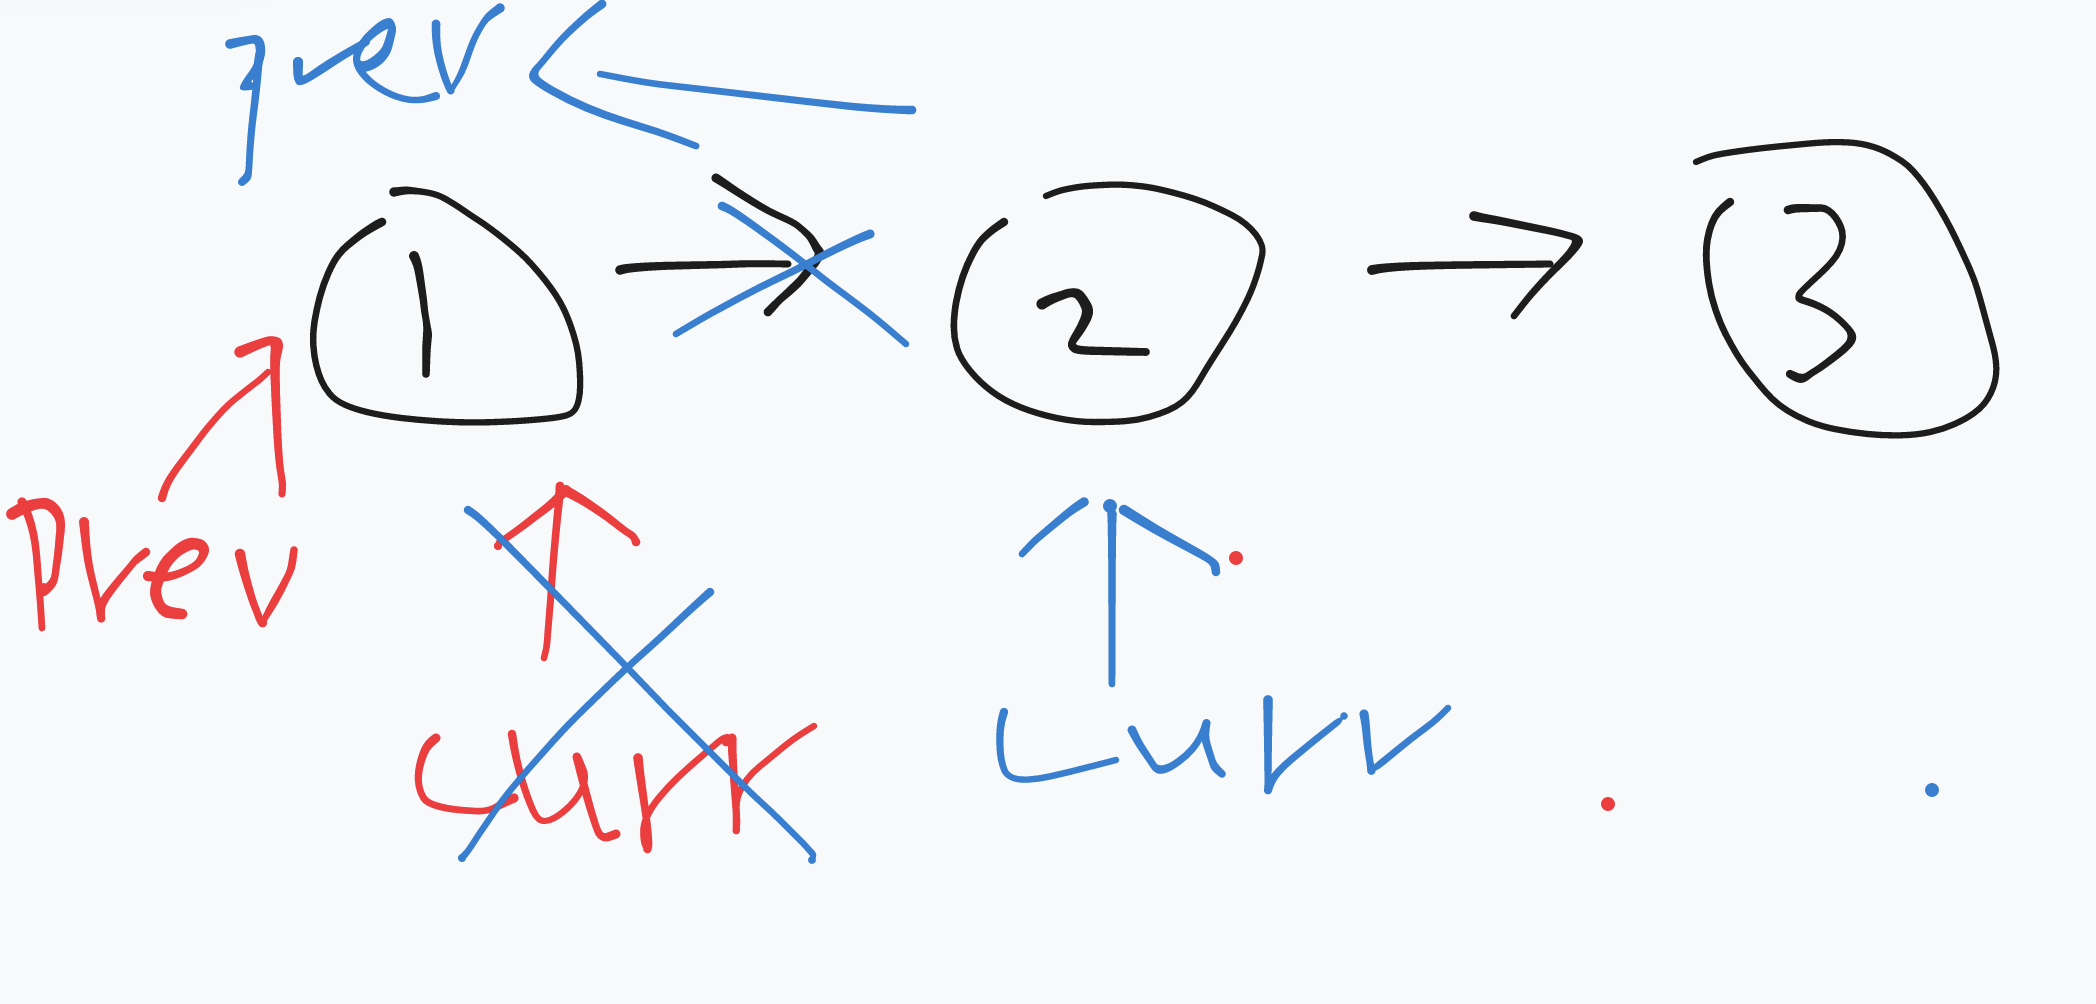 prev
1 → 2 → 3
Prev
curr curr